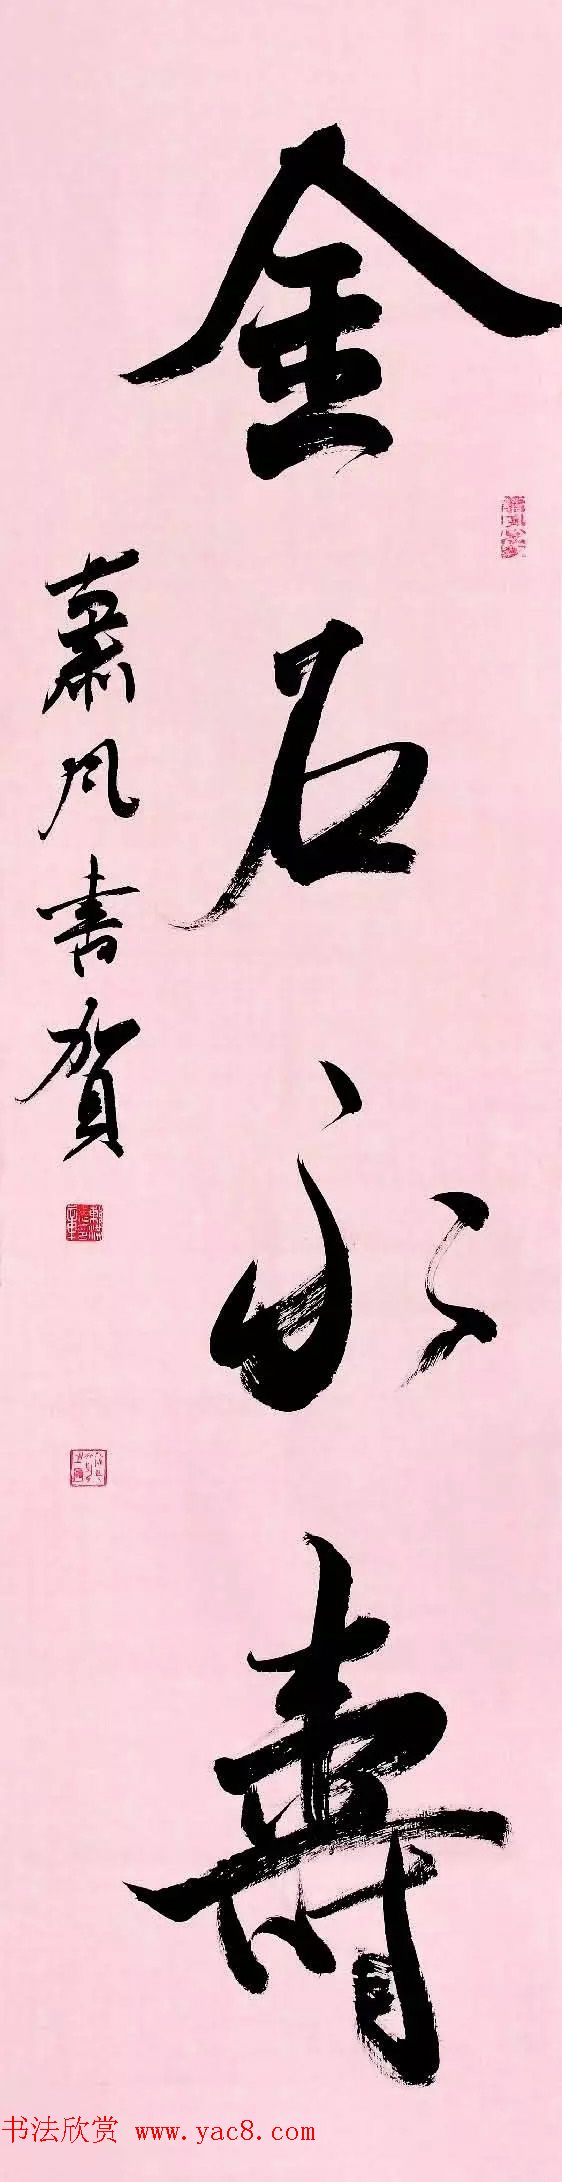 金石永壽
蕭风書賀
书法欣赏 www.yac8.com